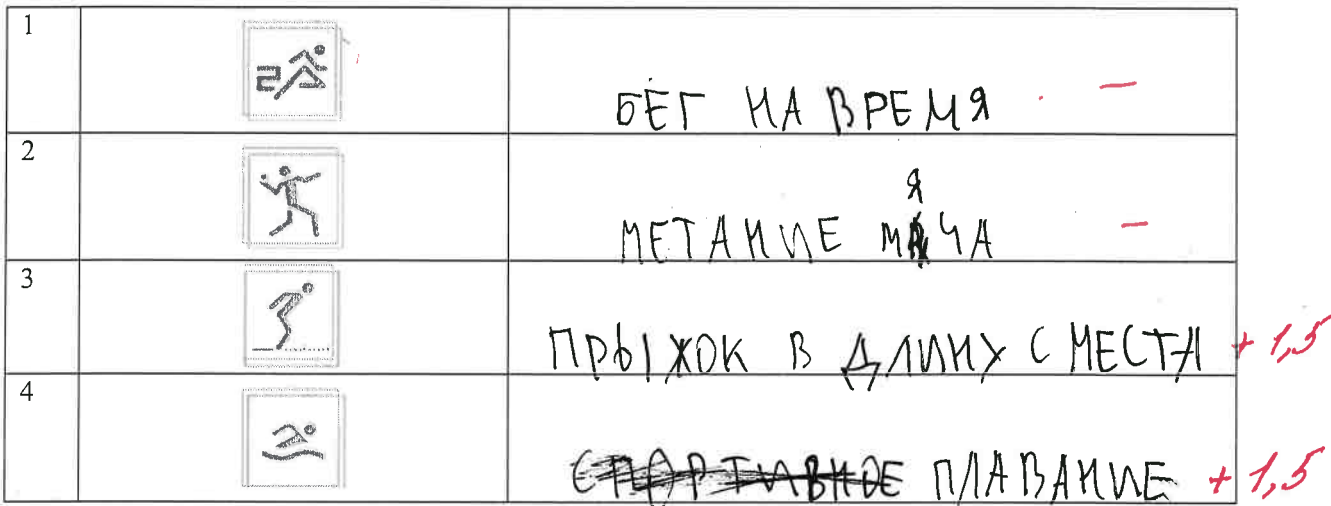 1
БЕГ НА ВРЕМЯ −
2
МЕТАНИЕ МЯЧА −
3
ПРЫЖОК В ДЛИНУ С МЕСТА + 1,5
4
СПОРТИВНОЕ ПЛАВАНИЕ + 1,5